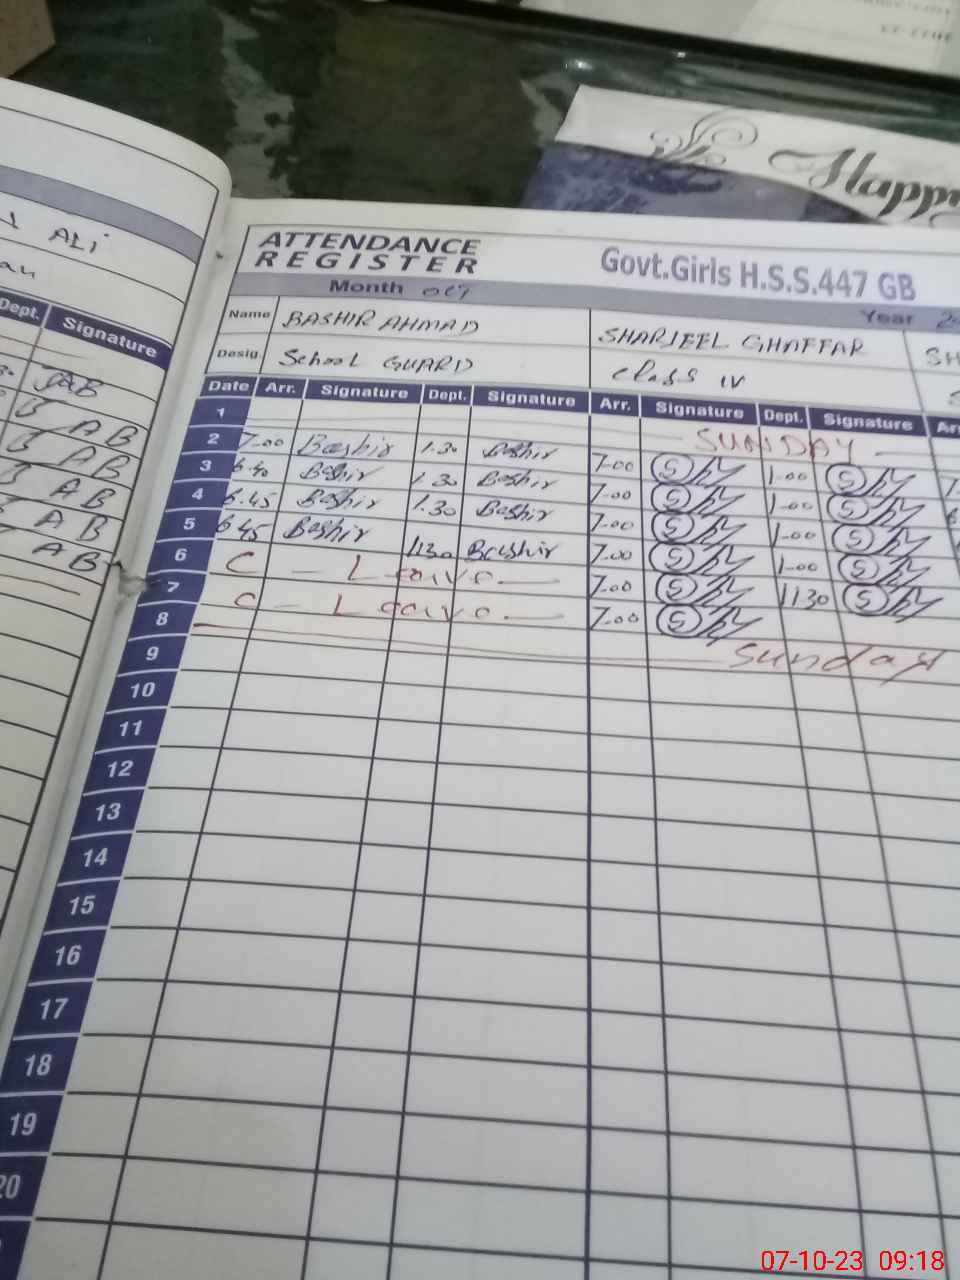 Happy
ALi
Dept. Signature
AB
AB
AB
AB
AB
AB
ATTENDANCE
REGISTER
Govt.Girls H.S.S.447 GB
Month OCT
Year
Name BASHIR AHMAD SHARJEEL GHAFFAR SH
Desig. School GUARD Class IV
Date Arr. Signature Dept. Signature Arr. Signature Dept. Signature
1 SUNDAY
2 7.00 Bashir 1.30 Bashir 7.00 1.00
3 6.40 Bashir 1.30 Bashir 7.00 1.00
4 6.45 Bashir 1.30 Bashir 7.00 1.00
5 6.45 Bashir 1130 Bashir 7.00 1.00
6 C - Leave 7.00 1130
7 C - Leave 7.00
8 Sunday
9
10
11
12
13
14
15
16
17
18
19
20
07-10-23 09:18